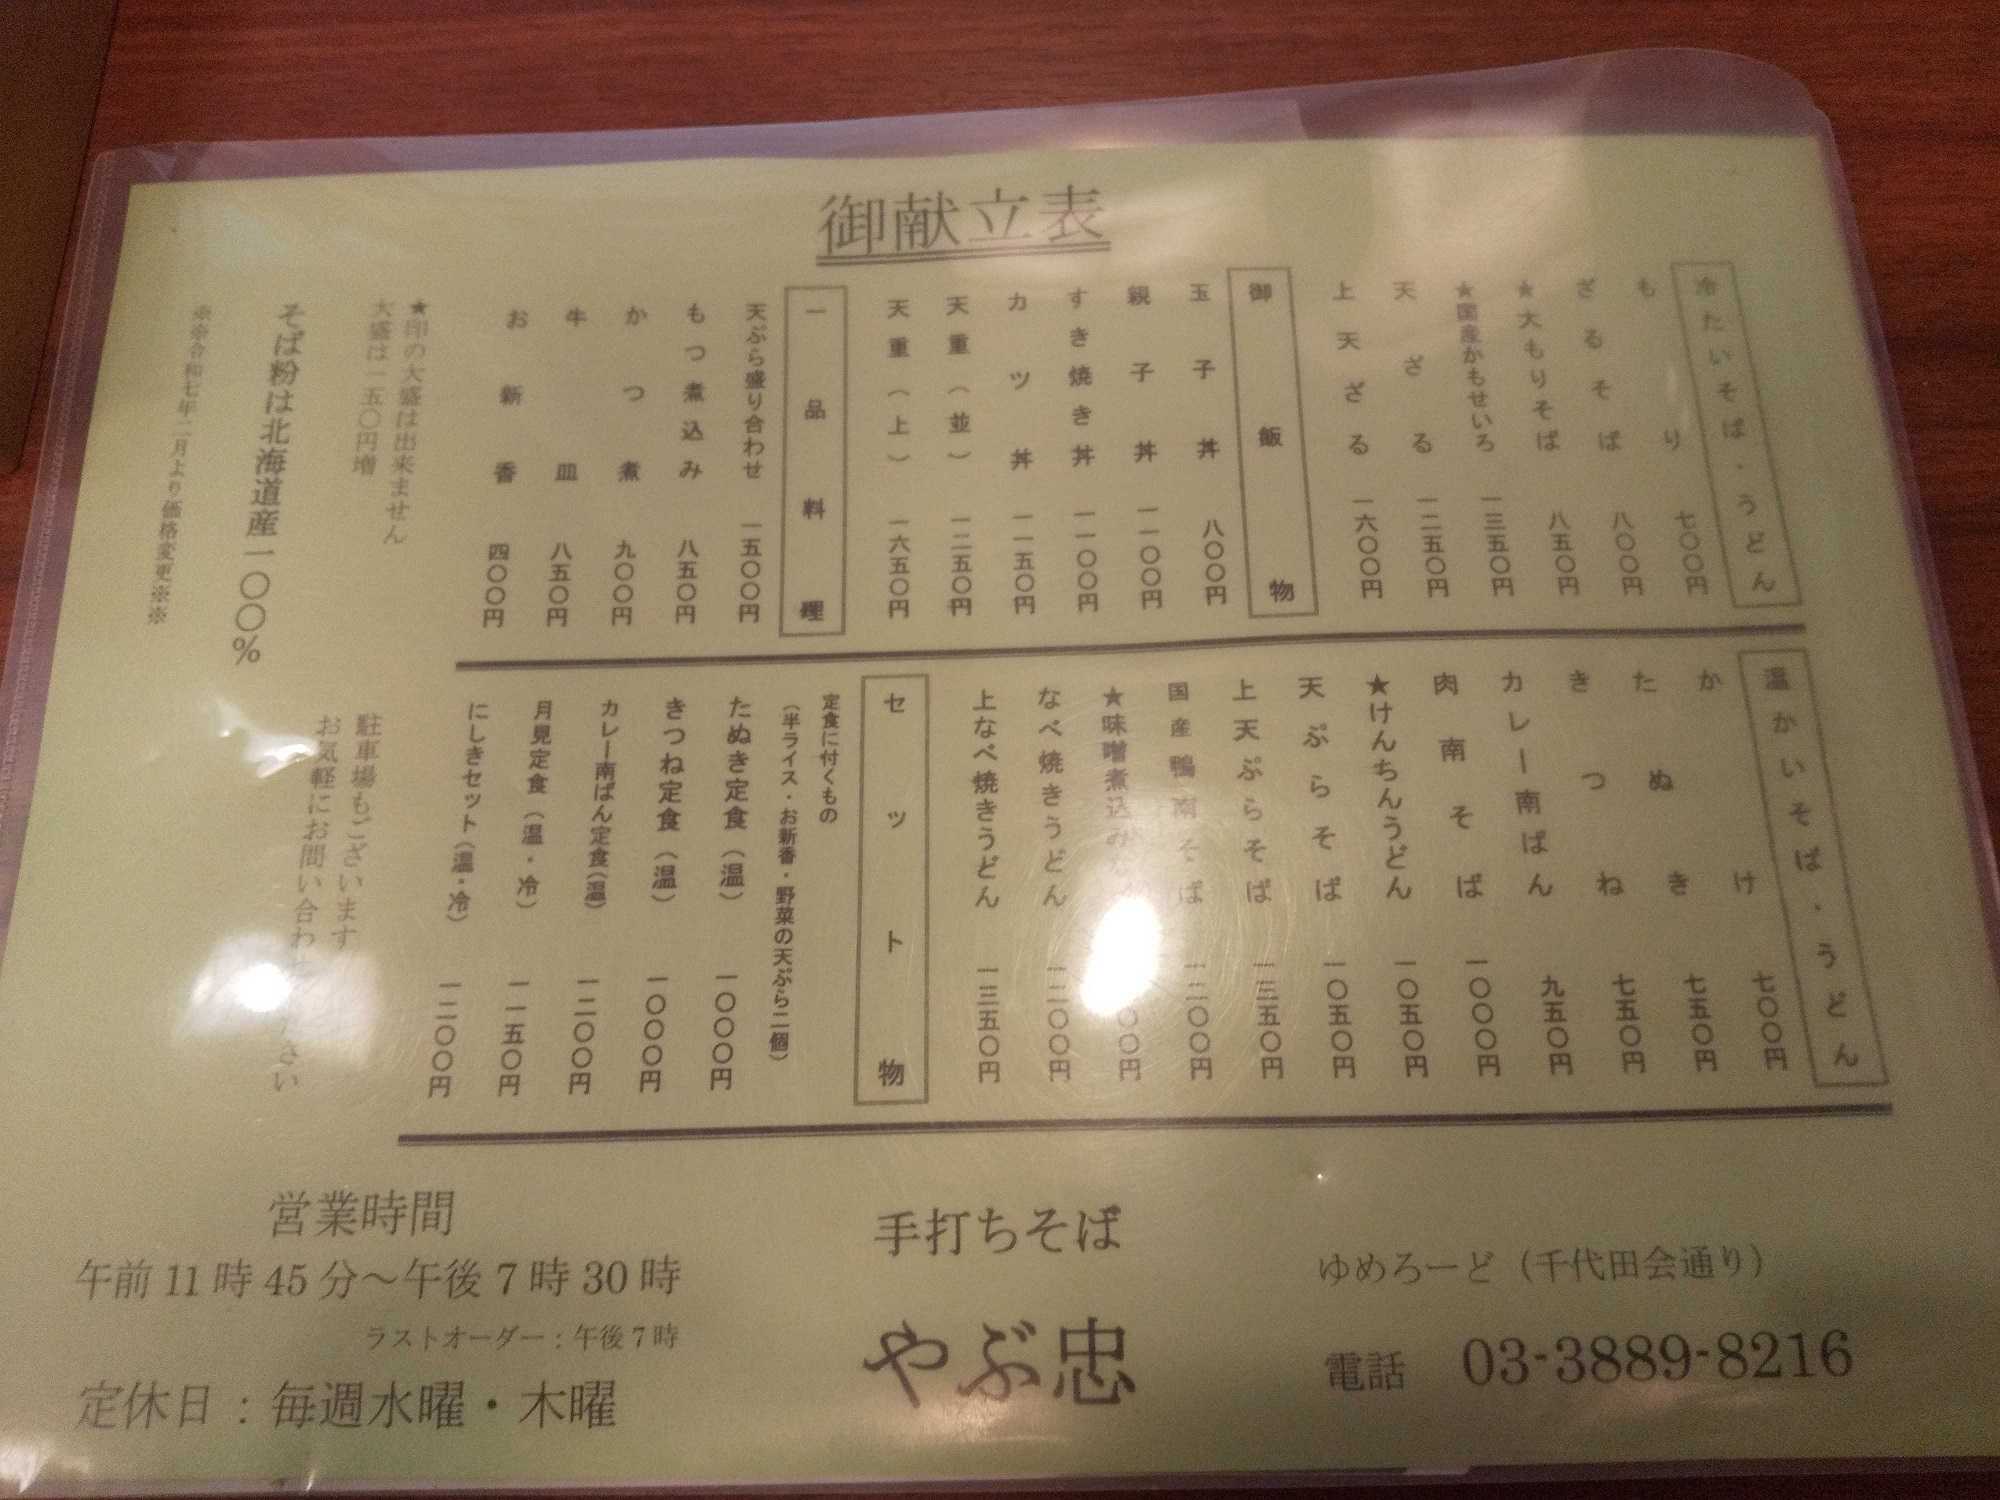 御献立表
冷たいそば・うどん
もり 七〇〇円
ざるそば 八〇〇円
★大もりそば 八五〇円
★国産かもせいろ 一三五〇円
天ざる 一二五〇円
上天ざる 一六〇〇円
御飯物
玉子丼 八〇〇円
親子丼 一一〇〇円
すき焼き丼 一一〇〇円
カツ丼 一一五〇円
天重(並) 一二五〇円
天重(上) 一六五〇円
一品料理
天ぷら盛り合わせ 一五〇〇円
もつ煮込み 八五〇円
かつ煮 九〇〇円
牛皿 八五〇円
お新香 四〇〇円
★印の大盛は出来ません
大盛は一五〇円増
そば粉は北海道産一〇〇%
※※令和七年二月より価格変更※※
温かいそば・うどん
かけ 七〇〇円
たぬき 七五〇円
きつね 七五〇円
カレー南ばん 九五〇円
肉南そば 一〇〇〇円
★けんちんうどん 一〇五〇円
天ぷらそば 一〇五〇円
上天ぷらそば 一三五〇円
国産鴨南そば 一二〇〇円
★味噌煮込み 〇〇円
なべ焼きうどん 一二〇〇円
上なべ焼きうどん 一三五〇円
セット物
定食に付くもの
(半ライス・お新香・野菜の天ぷら二個)
たぬき定食(温) 一〇〇〇円
きつね定食(温) 一〇〇〇円
カレー南ばん定食(温) 一二〇〇円
月見定食(温・冷) 一一五〇円
にしきセット(温・冷) 一二〇〇円
駐車場もございます
お気軽にお問い合わせください
営業時間
午前11時45分～午後7時30時
ラストオーダー：午後7時
定休日：毎週水曜・木曜
手打ちそば
やぶ忠
ゆめろーど（千代田会通り）
電話 03-3889-8216